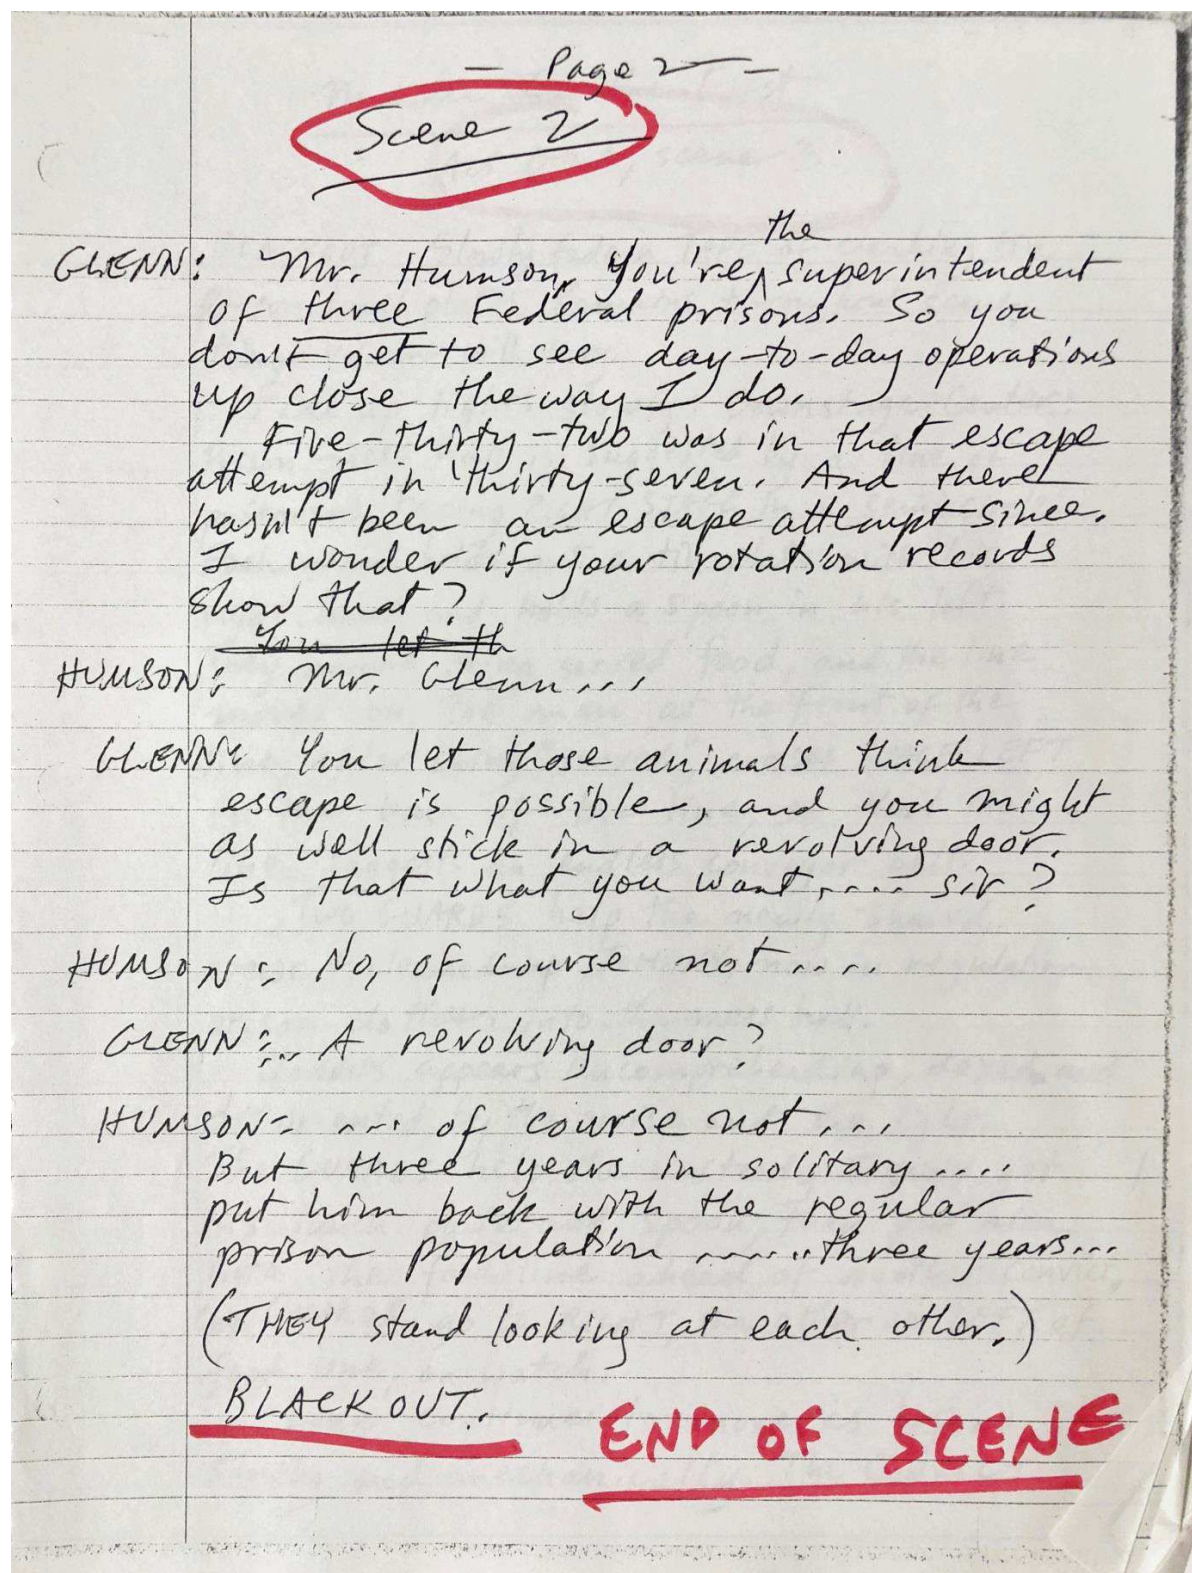 - Page 2 -
Scene 2
the
GLENN: Mr. Humson, You're ^ superintendent
of three Federal prisons. So you
don't get to see day-to-day operations
up close the way I do.
Five-thirty-two was in that escape
attempt in 'thirty-seven. And there
hasn't been an escape attempt since.
I wonder if your rotation records
show that?
You let th
HUMSON: Mr. Glenn...
GLENN: You let those animals think
escape is possible, and you might
as well stick in a revolving door.
Is that what you want,.... sir?
HUMSON: No, of course not....
GLENN:... A revolving door?
HUMSON: ... of course not...
But three years in solitary....
put him back with the regular
prison population ...... three years...
(THEY stand looking at each other.)
BLACKOUT.
END OF SCENE